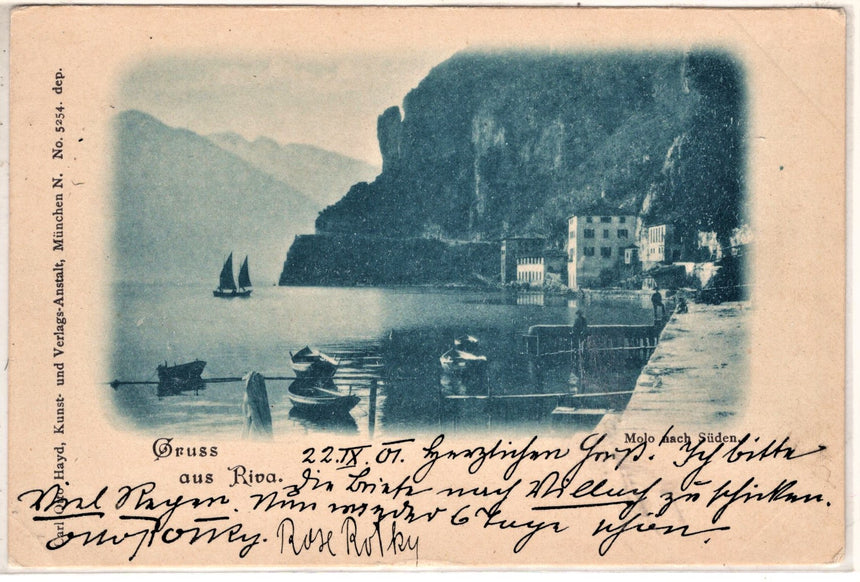 Carl Otto Hayd, Kunst- und Verlags-Anstalt, München N. No. 5254. dep.
Molo nach Süden.
Gruss
aus Riva.
22.IX.01. Herzlichen Gruß. Ich bitte
die Briefe nach Villach zu schicken.
Viel Regen. Nun wieder 6 Tage schön.
Rose Rotky